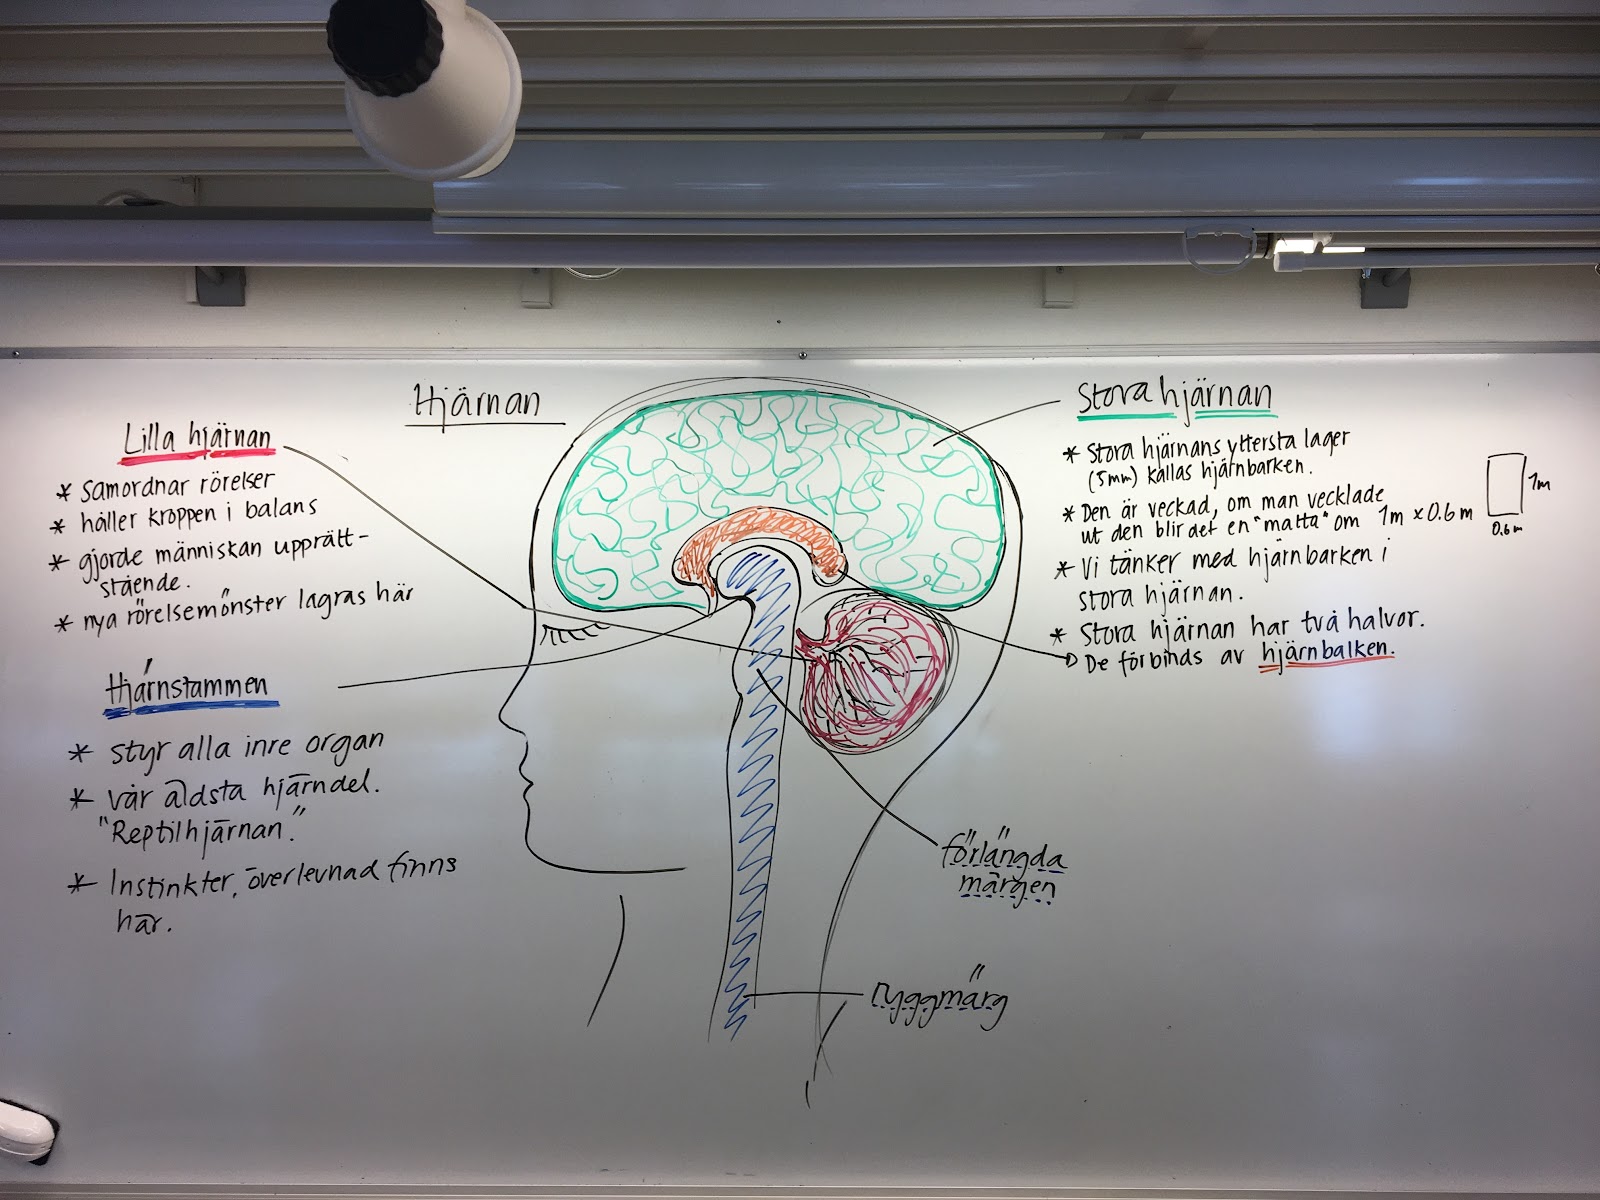 Hjärnan
Lilla hjärnan
* Samordnar rörelser
* håller kroppen i balans
* gjorde människan upprätt-
stående.
* nya rörelsemönster lagras här
Hjärnstammen
* styr alla inre organ
* vår äldsta hjärndel.
"Reptilhjärnan."
* Instinkter, överlevnad finns
här.
Stora hjärnan
* Stora hjärnans yttersta lager
(5mm) kallas hjärnbarken.
* Den är veckad, om man vecklade
ut den blir det en "matta" om 1m x 0.6 m
1m
0.6m
* Vi tänker med hjärnbarken i
stora hjärnan.
* Stora hjärnan har två halvor.
De förbinds av hjärnbalken.
förlängda
märgen
ryggmärg